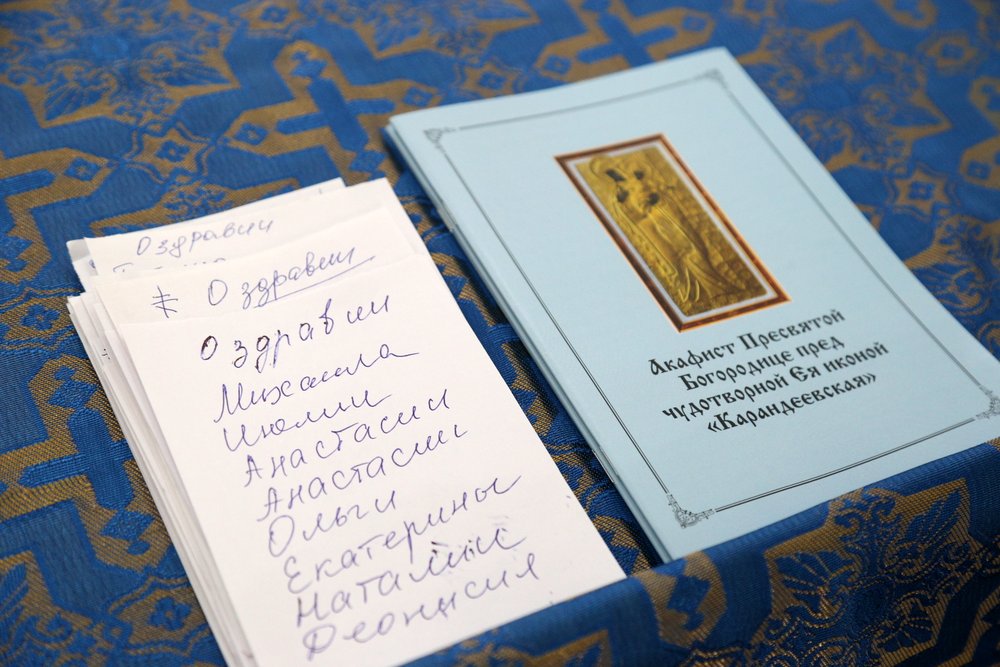 О здравии
О здравии
О здравии
Михаила
Юлии
Анастасии
Анастасии
Ольги
Екатерины
Наталии
Дионисия
Акафист Пресвятой
Богородице пред
чудотворной Ея иконой
«Карандеевская»